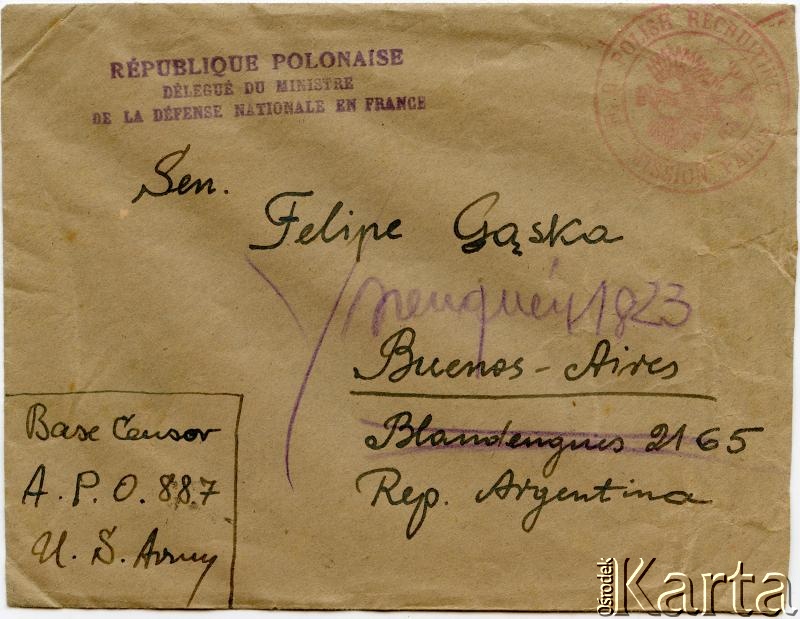 RÉPUBLIQUE POLONAISE
DÉLEGUÉ DU MINISTRE
DE LA DÉFENSE NATIONALE EN FRANCE
POLISH RECRUITING
MISSION PARIS
Sen.
Felipe Gąska
1823
Buenos-Aires
Blandengues 2165
Rep. Argentina
Base Censor
A. P. O. 887
U. S. Army
Ośrodek
Karta